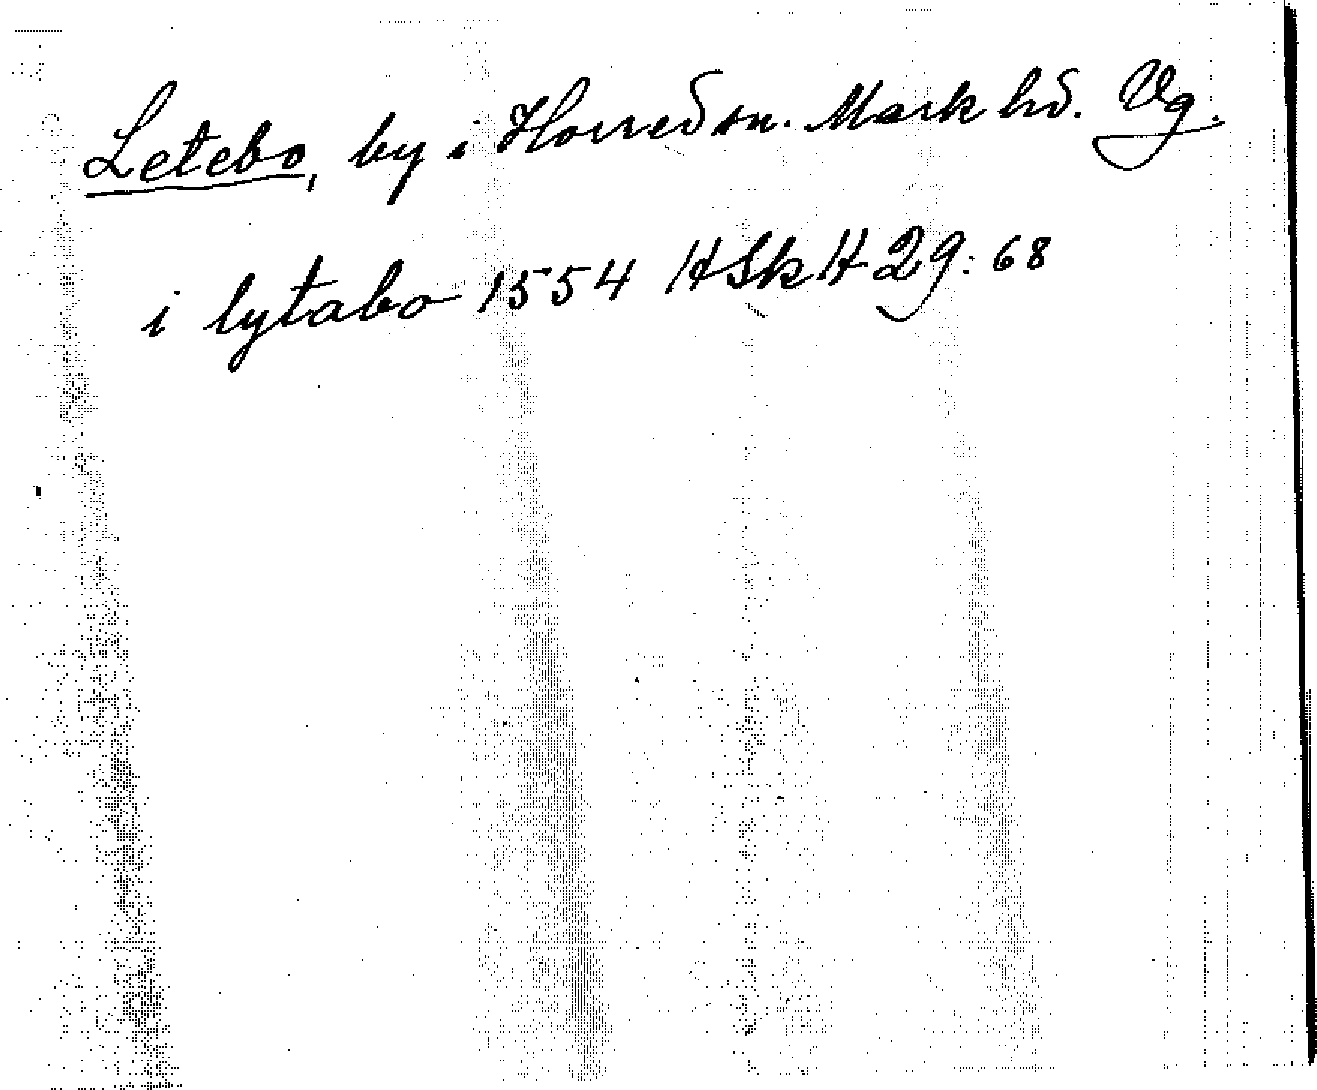 Letebo, by i Horred sn. Mark hd. Vg.
i lytabo 1554 HSkH 29: 68